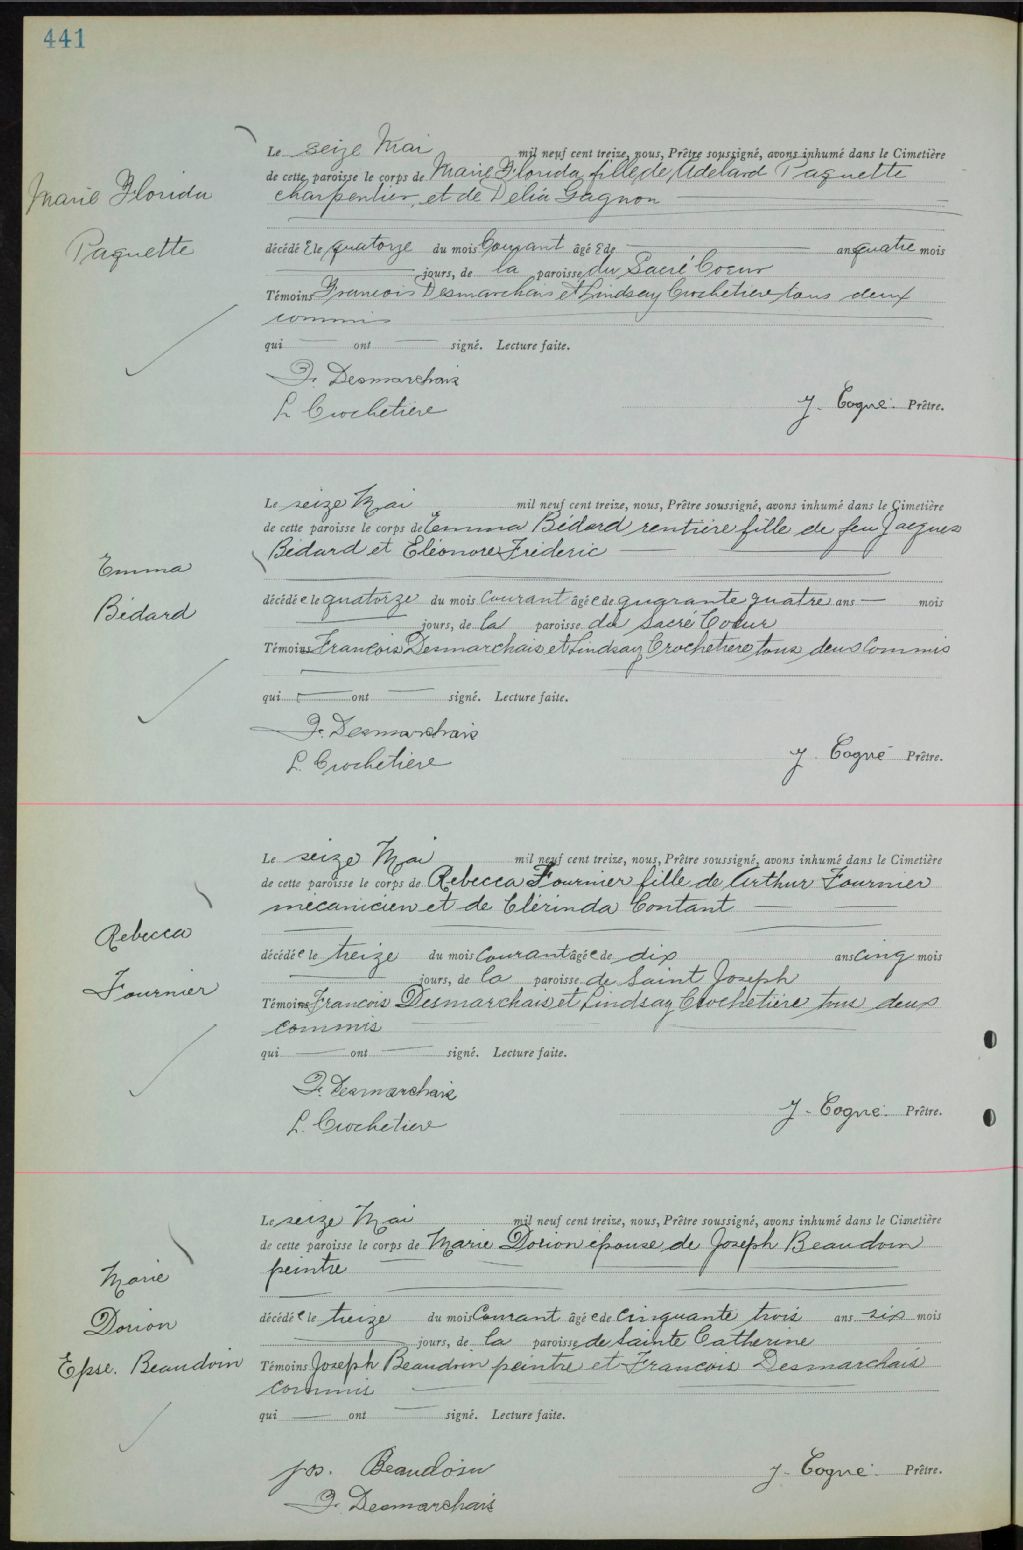 441
Marie Florida
Paquette
Le seize Mai mil neuf cent treize, nous, Prêtre soussigné, avons inhumé dans le Cimetière
de cette paroisse le corps de Marie Florida fille de Adelard Paquette
charpentier et de Delia Gagnon
décédé e le quatorze du mois Courant âgé e de ans quatre mois
jours, de la paroisse du Sacré Coeur
Témoins Francois Desmarchais et Lindsay Crochetiere tous deux
commis
qui ont signé. Lecture faite.
F. Desmarchais
L Crochetiere
J. Cogné. Prêtre.
Emma
Bédard
Le seize Mai mil neuf cent treize, nous, Prêtre soussigné, avons inhumé dans le Cimetière
de cette paroisse le corps de Emma Bédard rentière fille de feu Jacques
Bédard et Eléonore Frideric
décédé e le quatorze du mois courant âgé e de quarante quatre ans mois
jours, de la paroisse du Sacré Coeur
Témoins Francois Desmarchais et Lindsay Crochetiere tous deux Commis
qui ont signé. Lecture faite.
F. Desmarchais
L. Crochetière
J. Cogné Prêtre.
Rebecca
Fournier
Le seize Mai mil neuf cent treize, nous, Prêtre soussigné, avons inhumé dans le Cimetière
de cette paroisse le corps de Rebecca Fournier fille de Arthur Fournier
mécanicien et de Clérinda Contant
décédé e le treize du mois Courant âgé e de dix ans cinq mois
jours, de la paroisse de Saint Joseph
Témoins Francois Desmarchais et Lindsay Crochetière tous deux
commis
qui ont signé. Lecture faite.
F. Desmarchais
L. Crochetiere
J. Cogné. Prêtre.
Marie
Dorion
Epse. Beaudoin
Le seize Mai mil neuf cent treize, nous, Prêtre soussigné, avons inhumé dans le Cimetière
de cette paroisse le corps de Marie Dorion épouse de Joseph Beaudoin
peintre
décédé e le treize du mois Courant âgé e de cinquante trois ans six mois
jours, de la paroisse de Sainte Catherine
Témoins Joseph Beaudoin peintre et Francois Desmarchais
commis
qui ont signé. Lecture faite.
jos. Beaudoin
F. Desmarchais
J. Cogné. Prêtre.